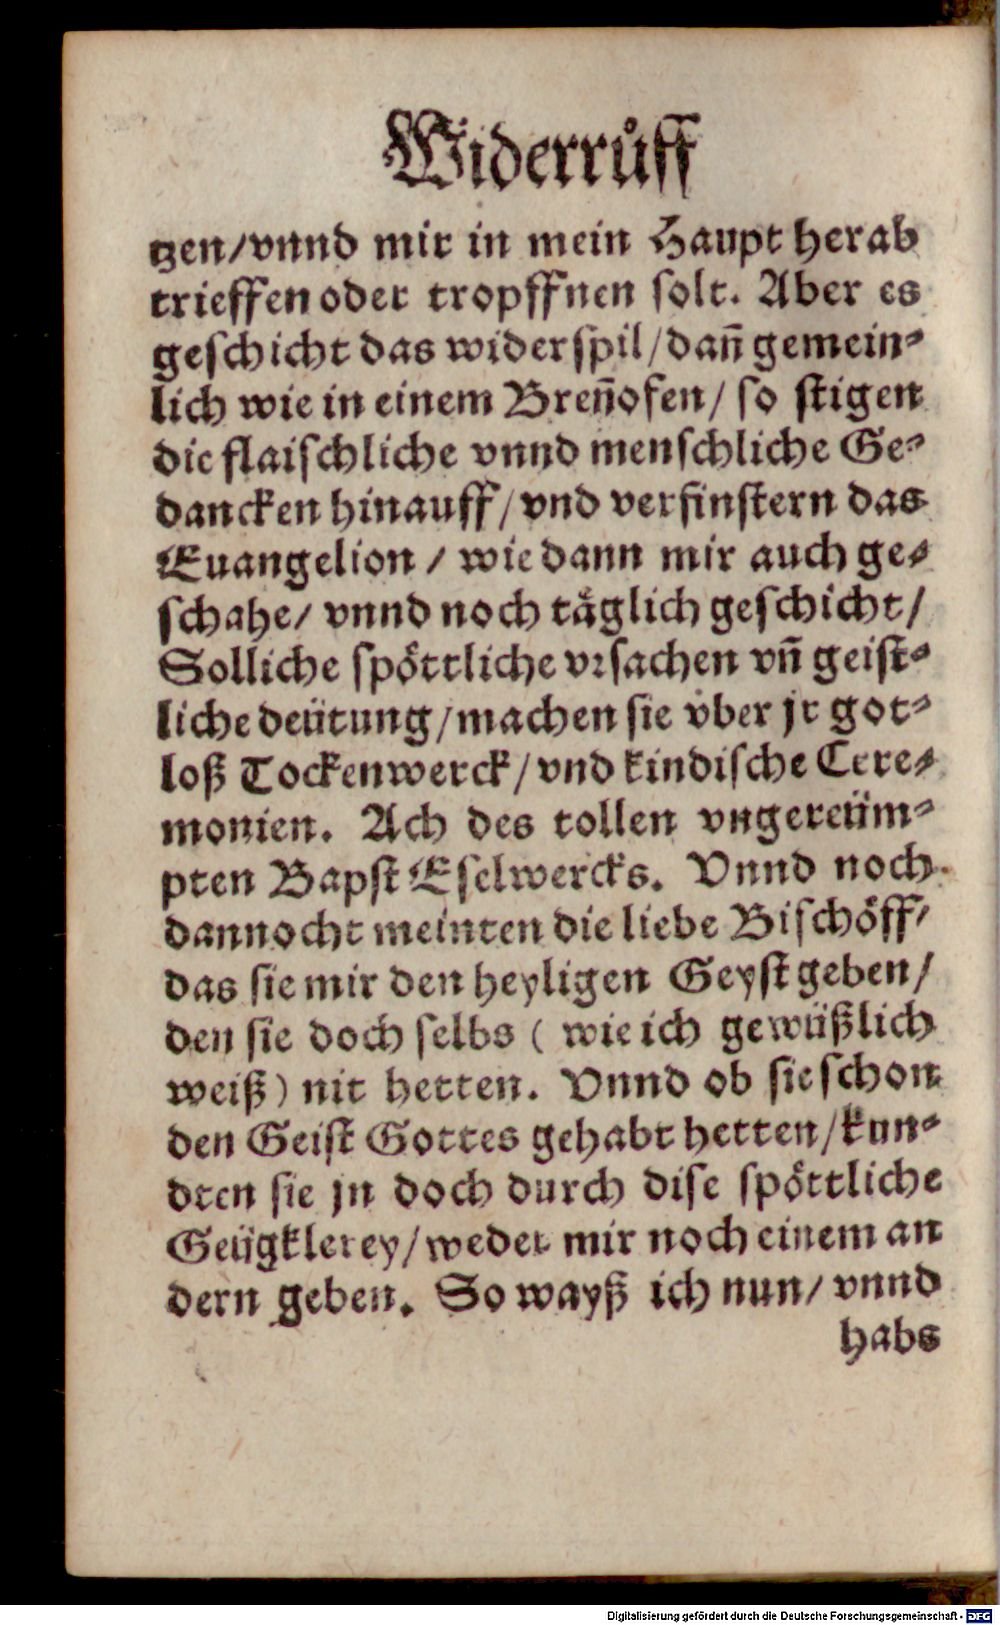 Widerrůff
tzen/vnnd mir in mein Haupt herab
trieffen oder tropffnen solt. Aber es
geschicht das widerspil/dañ gemein⸗
lich wie in einem Breñofen/ so stigen
die flaischliche vnnd menschliche Ge⸗
dancken hinauff/vnd verfinstern das
Euangelion / wie dann mir auch ge⸗
schahe/ vnnd noch täglich geschicht/
Solliche spöttliche vrsachen vñ geist⸗
liche deütung/machen sie vber jr got⸗
loß Tockenwerck/vnd kindische Cere⸗
monien. Ach des tollen vngereüm⸗
pten Bapst Eselwercks. Vnnd noch
dannocht meinten die liebe Bischöff/
das sie mir den heyligen Geyst geben/
den sie doch selbs ( wie ich gewüßlich
weiß) nit hetten. Vnnd ob sie schon
den Geist Gottes gehabt hetten/kun⸗
dten sie jn doch durch dise spöttliche
Geügklerey/weder mir noch einem an
dern geben. So wayß ich nun/ vnnd
habs
Digitalisierung gefördert durch die Deutsche Forschungsgemeinschaft - DFG